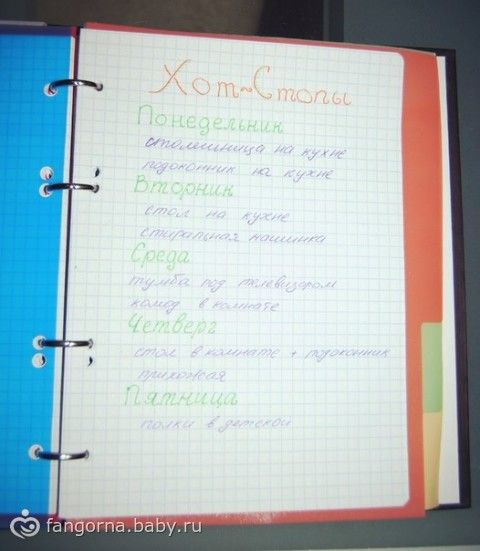 Хот~Стопы
Понедельник
столешница на кухне
подоконник на кухне
Вторник
стол на кухне
стиральная машинка
Среда
тумба под телевизором
комод в комнате
Четверг
стол в комнате + подоконник
прихожая
Пятница
полки в детской
fangorna.baby.ru